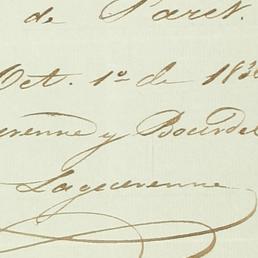 de Paret.
Oct. 1º de 183
erenne y Bourdel
Laguerenne